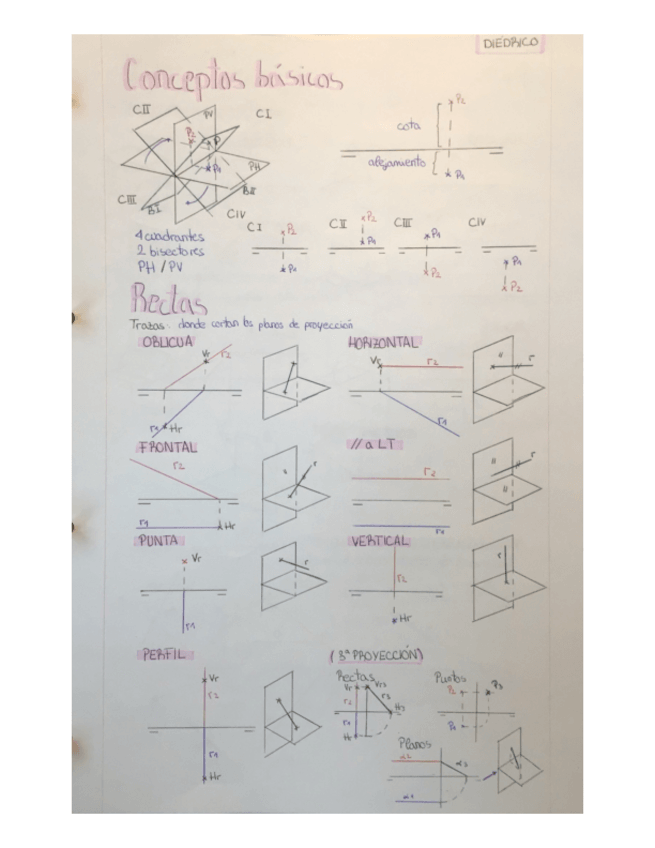 DIEDRICO
Conceptos básicos
CII
PV
CI
P2
P
P1
PH
CIII
BI
BII
CIV
cota
P2
alejamiento
P1
4 cuadrantes
2 bisectores
PH / PV
CI
P2
P1
CII
P2
P1
CIII
P1
P2
CIV
P1
P2
Rectas
Trazas: donde cortan los planos de proyección
OBLICUA
Vr
r2
r1
Hr
HORIZONTAL
Vr
r2
r1
r
FRONTAL
r2
r1
Hr
r
// a LT
r2
r1
r
PUNTA
Vr
r1
r
VERTICAL
r2
Hr
r
PERFIL
Vr
r2
r1
Hr
(3ª PROYECCIÓN)
Rectas
Vr
Vr3
r2
r3
r1
H3
Hr
Puntos
P2
P3
P1
Planos
α2
α3
α1